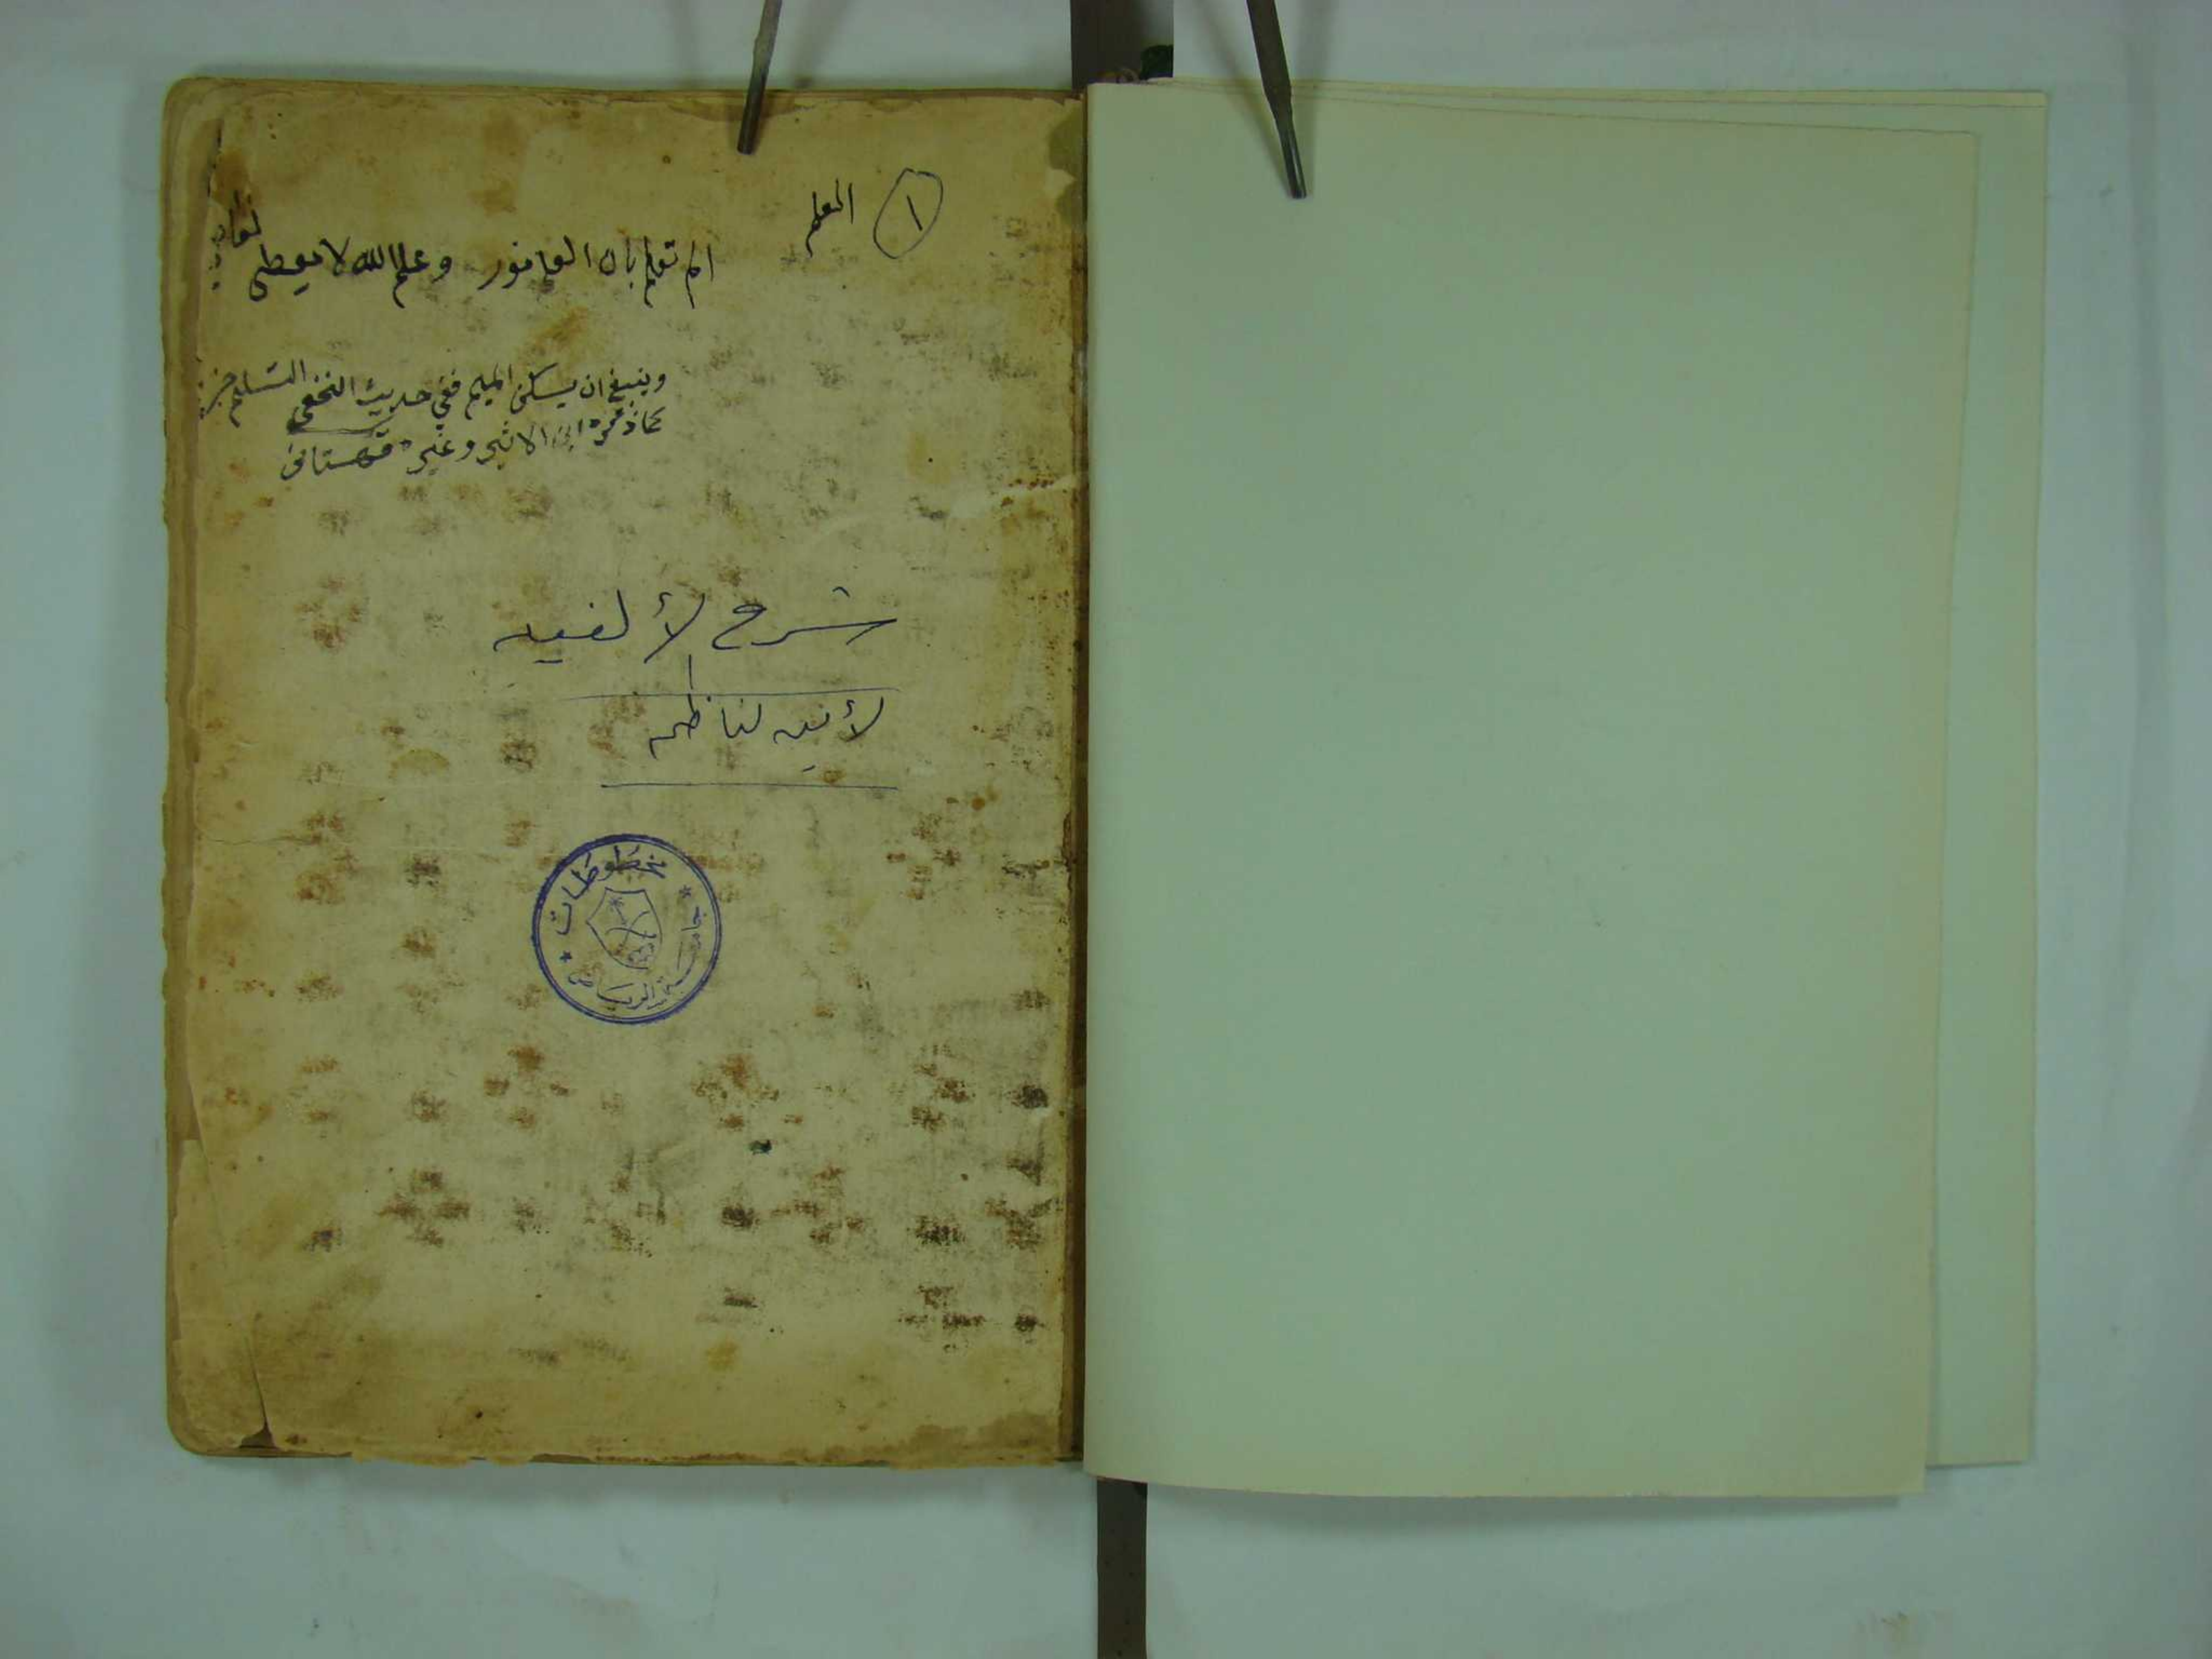 ١
العلم
الم تعلم بان العلم نور وعلم الله لا يعطى
وينبغي ان يسكن الميم ففي حديث النخعي التسليم جزم
كما ذكره ابن الاثير وغيره قهستاني
شرح لألفيه
لأبيه لناظم
مخطوطات
جامعة الرياض